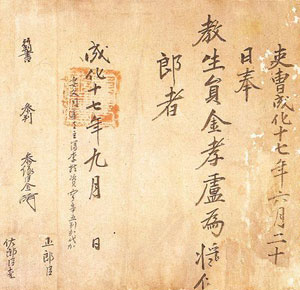 吏曹成化十七年六月二十
日奉
教生員金孝盧爲將仕
郎者
成化十七年九月 日
判書 參判 參議臣金 正郎臣
佐郎臣